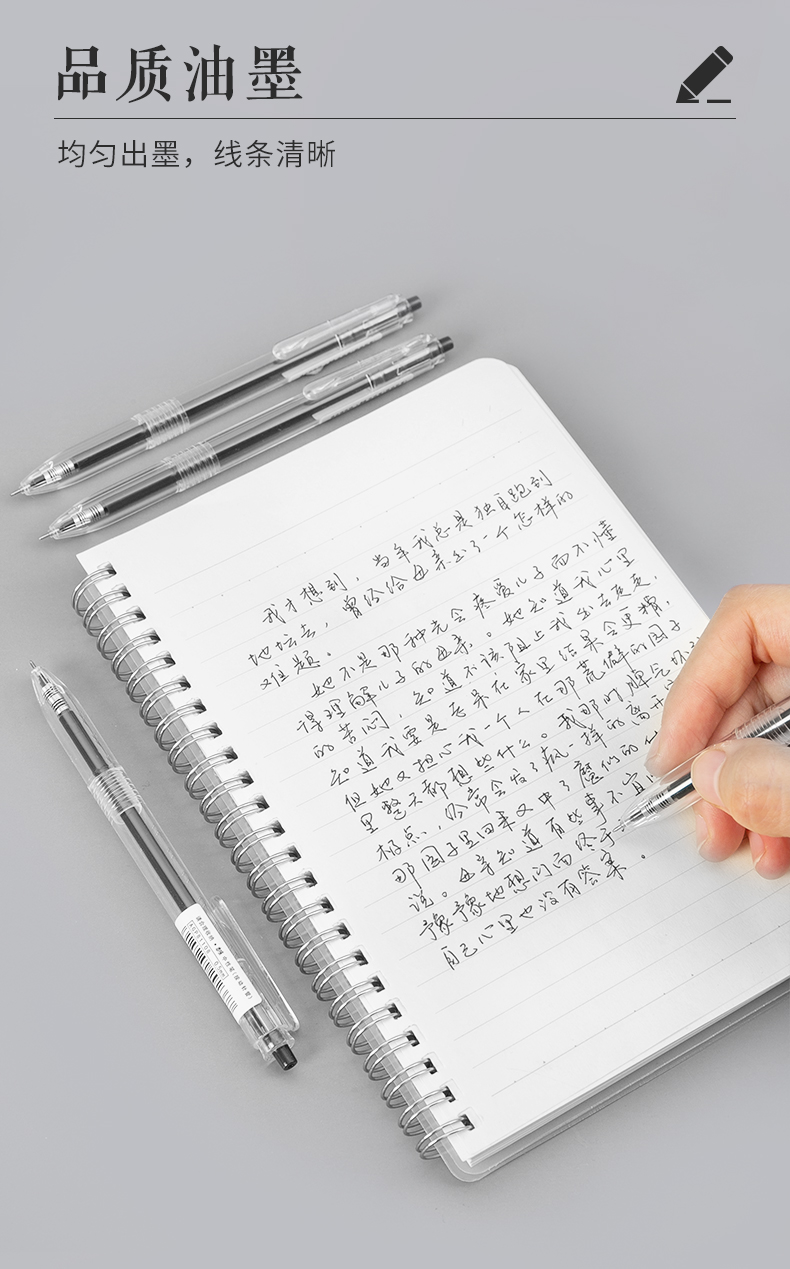 品质油墨
均匀出墨，线条清晰
我才想到，当年我总是独自跑到
地坛去，曾经给母亲出了一个怎样的
难题。
她不是那种光会疼爱儿子而不懂
得理解儿子的母亲。她知道我心里
的苦闷，知道不该阻止我出去走走，
知道我要是老呆在家里结果会更糟，
但她又担心我一个人在那荒僻的园子
里整天都想些什么。我那时脾气坏
极点，经常会发了疯一样的离开
那园子里回来又中了魔似的什
说。母亲知道有些事不宜
豫豫地想问而终于
自己心里也没有答案。